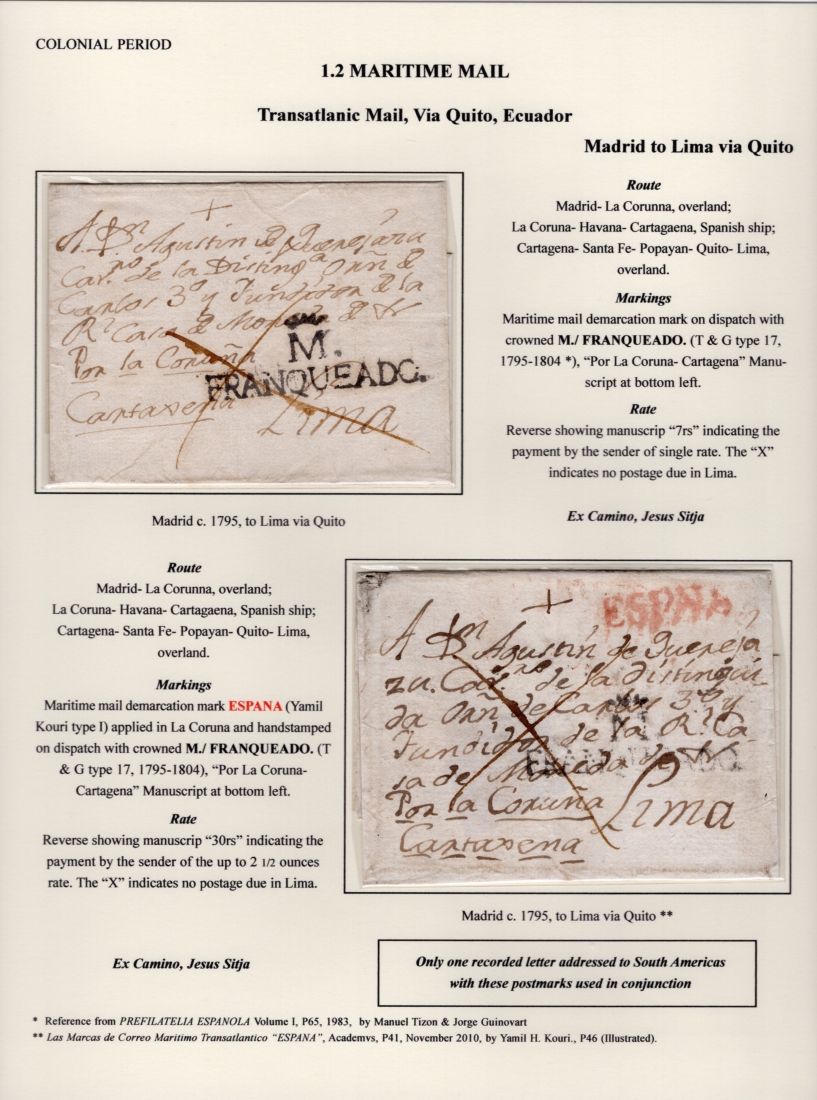 COLONIAL PERIOD
1.2 MARITIME MAIL
Transatlanic Mail, Via Quito, Ecuador
Madrid to Lima via Quito
A Dn Agustin
Carno de la Disting.a Orñ
Carlos 3º y Fundidor de la
Rl Casa
Por la Coruña
Cartaxena
Lima
M.
FRANQUEADO.
Madrid c. 1795, to Lima via Quito
Route
Madrid- La Corunna, overland;
La Coruna- Havana- Cartagaena, Spanish ship;
Cartagena- Santa Fe- Popayan- Quito- Lima,
overland.
Markings
Maritime mail demarcation mark on dispatch with
crowned M./ FRANQUEADO. (T & G type 17,
1795-1804 *), “Por La Coruna- Cartagena” Manu-
script at bottom left.
Rate
Reverse showing manuscrip “7rs” indicating the
payment by the sender of single rate. The “X”
indicates no postage due in Lima.
Ex Camino, Jesus Sitja
Route
Madrid- La Corunna, overland;
La Coruna- Havana- Cartagaena, Spanish ship;
Cartagena- Santa Fe- Popayan- Quito- Lima,
overland.
Markings
Maritime mail demarcation mark ESPANA (Yamil
Kouri type I) applied in La Coruna and handstamped
on dispatch with crowned M./ FRANQUEADO. (T
& G type 17, 1795-1804), “Por La Coruna-
Cartagena” Manuscript at bottom left.
Rate
Reverse showing manuscrip “30rs” indicating the
payment by the sender of the up to 2 1/2 ounces
rate. The “X” indicates no postage due in Lima.
Ex Camino, Jesus Sitja
ESPNA
A Dn Agustin de Quereja
zu. Cavno de la distingui-
da Orñ de Carlos 3º y
Fundidor de la Rl Ca-
sa de Moneda de
Por la Coruña
Cartaxena
Lima
M
FRANQUEADO.
Madrid c. 1795, to Lima via Quito **
Only one recorded letter addressed to South Americas
with these postmarks used in conjunction
* Reference from PREFILATELIA ESPANOLA Volume I, P65, 1983, by Manuel Tizon & Jorge Guinovart
** Las Marcas de Correo Maritimo Transatlantico "ESPANA", Academvs, P41, November 2010, by Yamil H. Kouri., P46 (Illustrated).